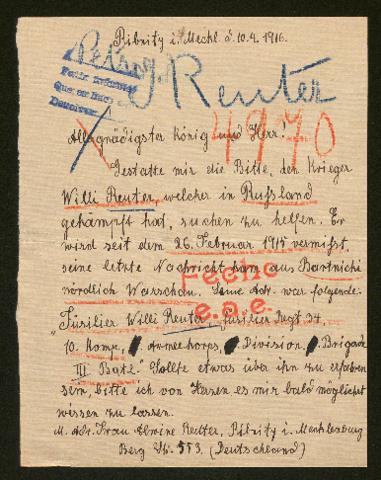 Ribnitz i. Meckl. d. 10.4. 1916.
Petrog.
Reuter
4970
Allergnädigster König und Herr!
Gestatte mir die Bitte, den Krieger
Willi Reuter, welcher in Rußland
gekämpft hat, suchen zu helfen. Er
wird seit dem 26. Februar 1915 vermißt,
seine letzte Nachricht kam aus Bartnicki
nördlich Warschau. Seine Adr. war folgende:
e.a.e.
"Füsilier Willi Reuter, Füsilier Regt 34,
10. Komp, Armeekorps, Division, Brigade
III Batl." Sollte etwas über ihn zu erfahren
sein, bitte ich von Herzen es mir bald möglichst
wissen zu lassen.
M. Adr. Frau Reuter, Ribnitz i. Mecklenburg
Berg Str. 553. (Deutschland)